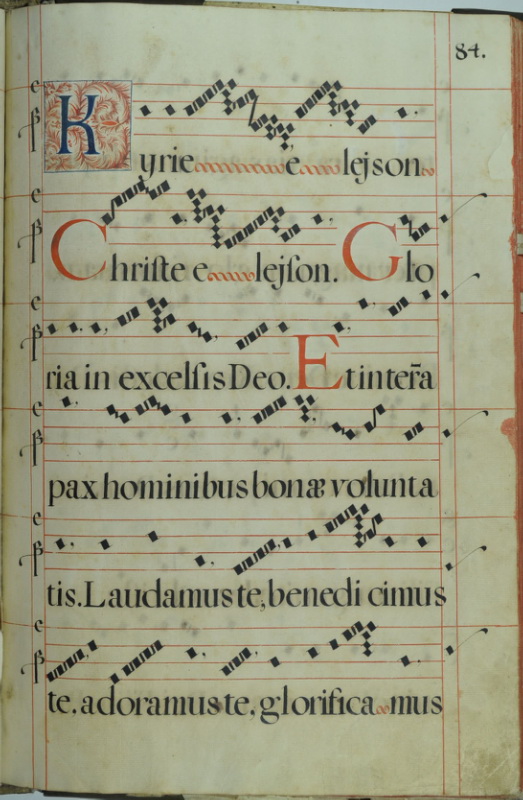 84.
Kyrie e lejson
Christe elejson. Glo
ria in excelsis Deo. Et in ter̃a
pax hominibus bonæ volunta
tis. Laudamus te, benedi cimus
te, adoramus te, glorifica mus